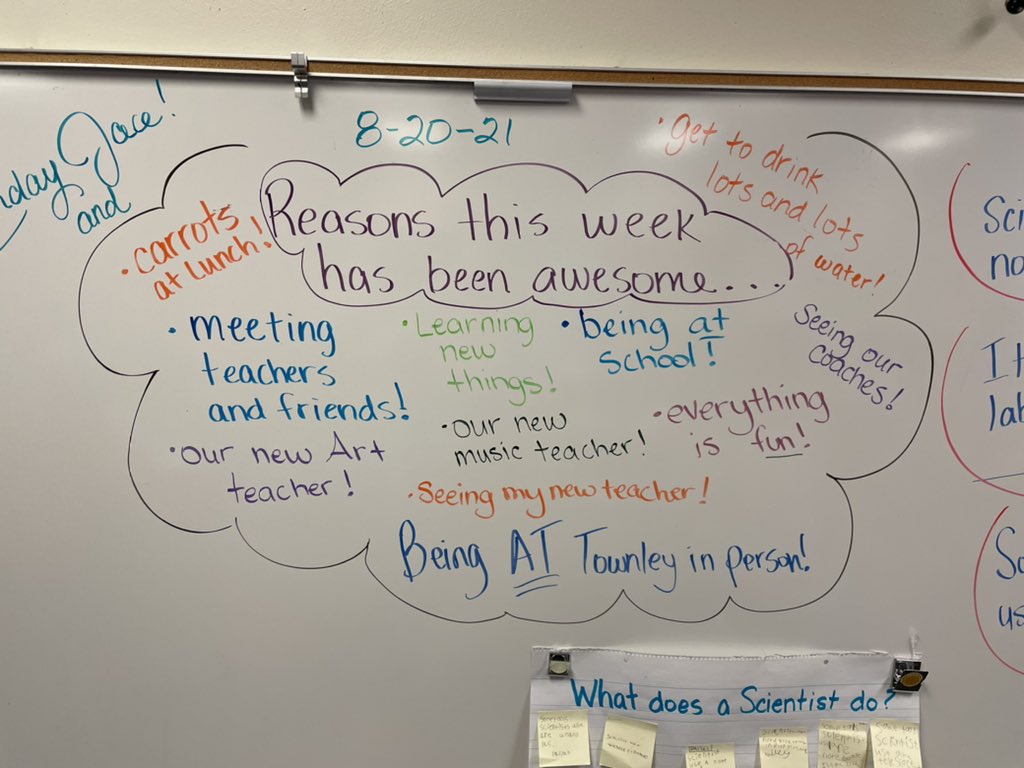 Jace!
and
8-20-21
Reasons this week
has been awesome...
• carrots
at lunch!
• get to drink
lots and lots
of water!
• meeting
teachers
and friends!
• Learning
new
things!
• being at
school!
Seeing our
coaches!
• our new Art
teacher!
• our new
music teacher!
• everything
is fun!
• Seeing my new teacher!
Being AT Townley in person!
What does a Scientist do?